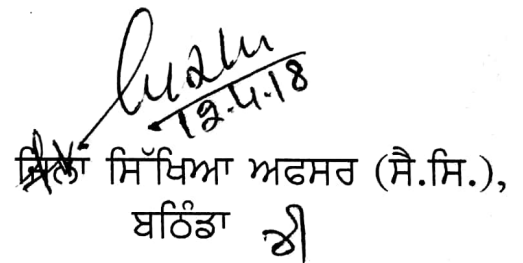 12.4.18
ਜ਼ਿਲਾ ਸਿੱਖਿਆ ਅਫਸਰ (ਸੈ.ਸਿ.),
ਬਠਿੰਡਾ